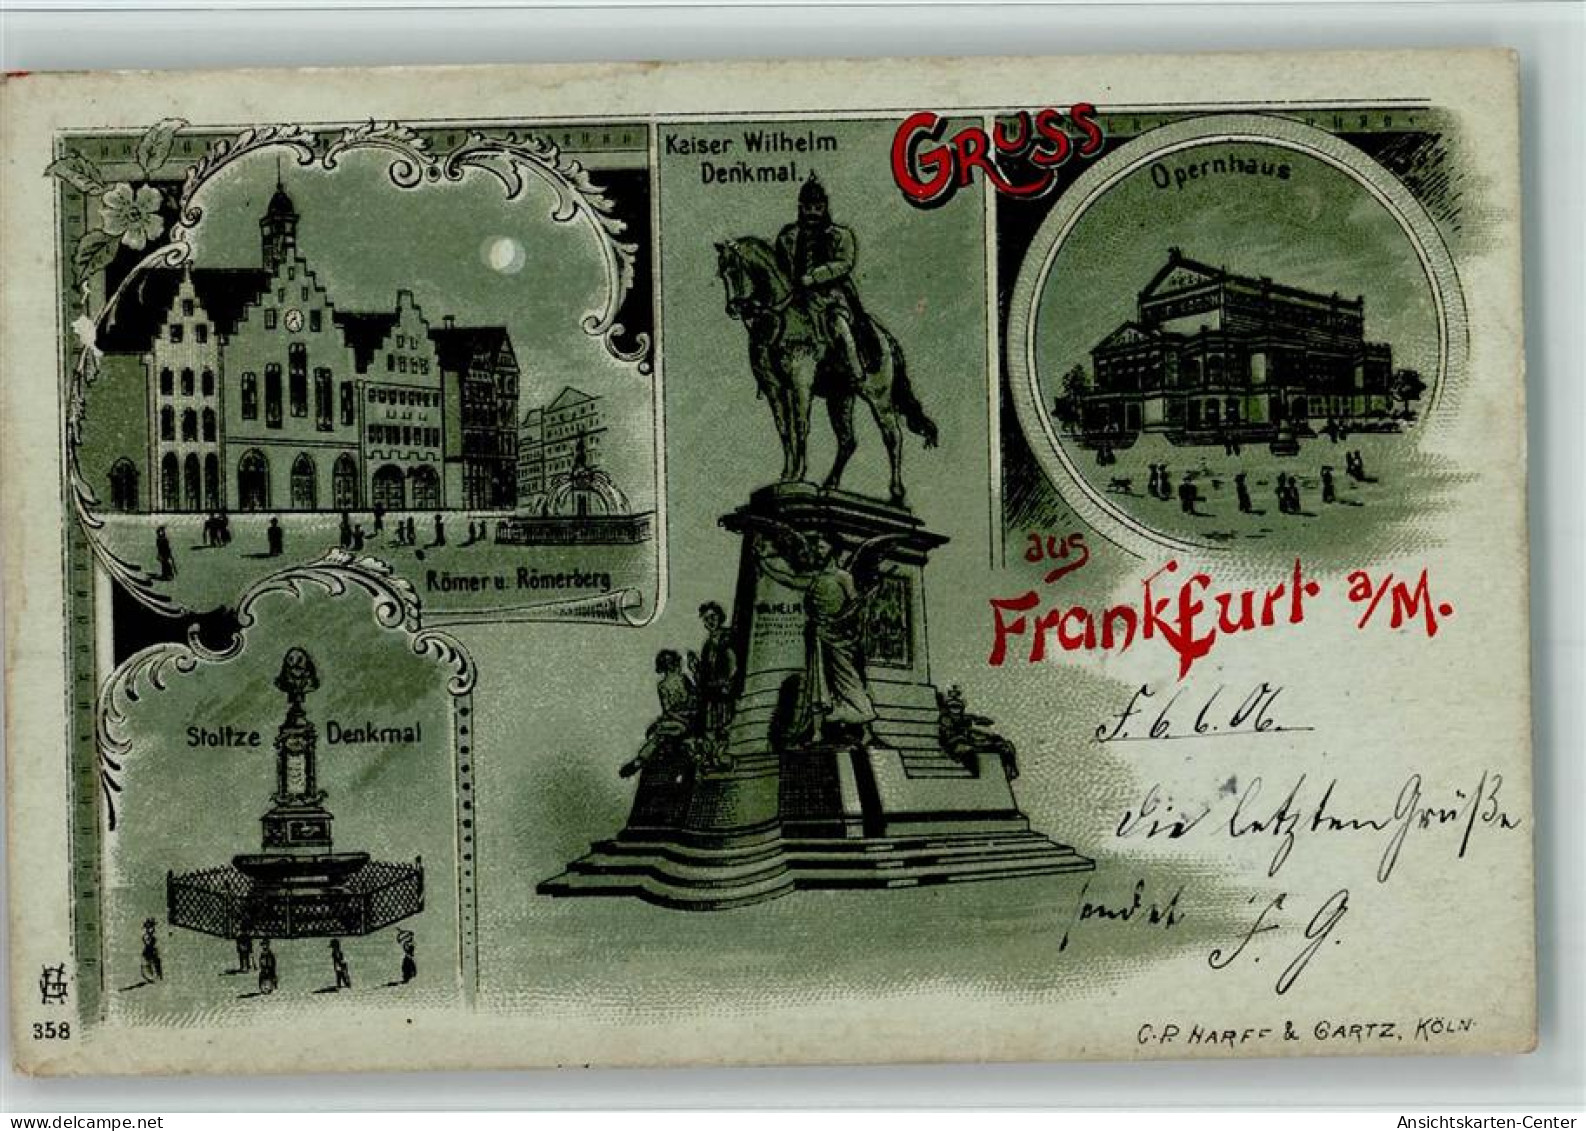 Kaiser Wilhelm
Denkmal.
GRUSS
Opernhaus
Römer u. Römerberg
aus
Frankfurt a/M.
WILHELM
Stoltze Denkmal
F. 6. 6. 06.
Die letzten Grüße
sendet F. G.
358
C. P. HARFF & GARTZ, KÖLN.
www.delcampe.net
Ansichtskarten-Center